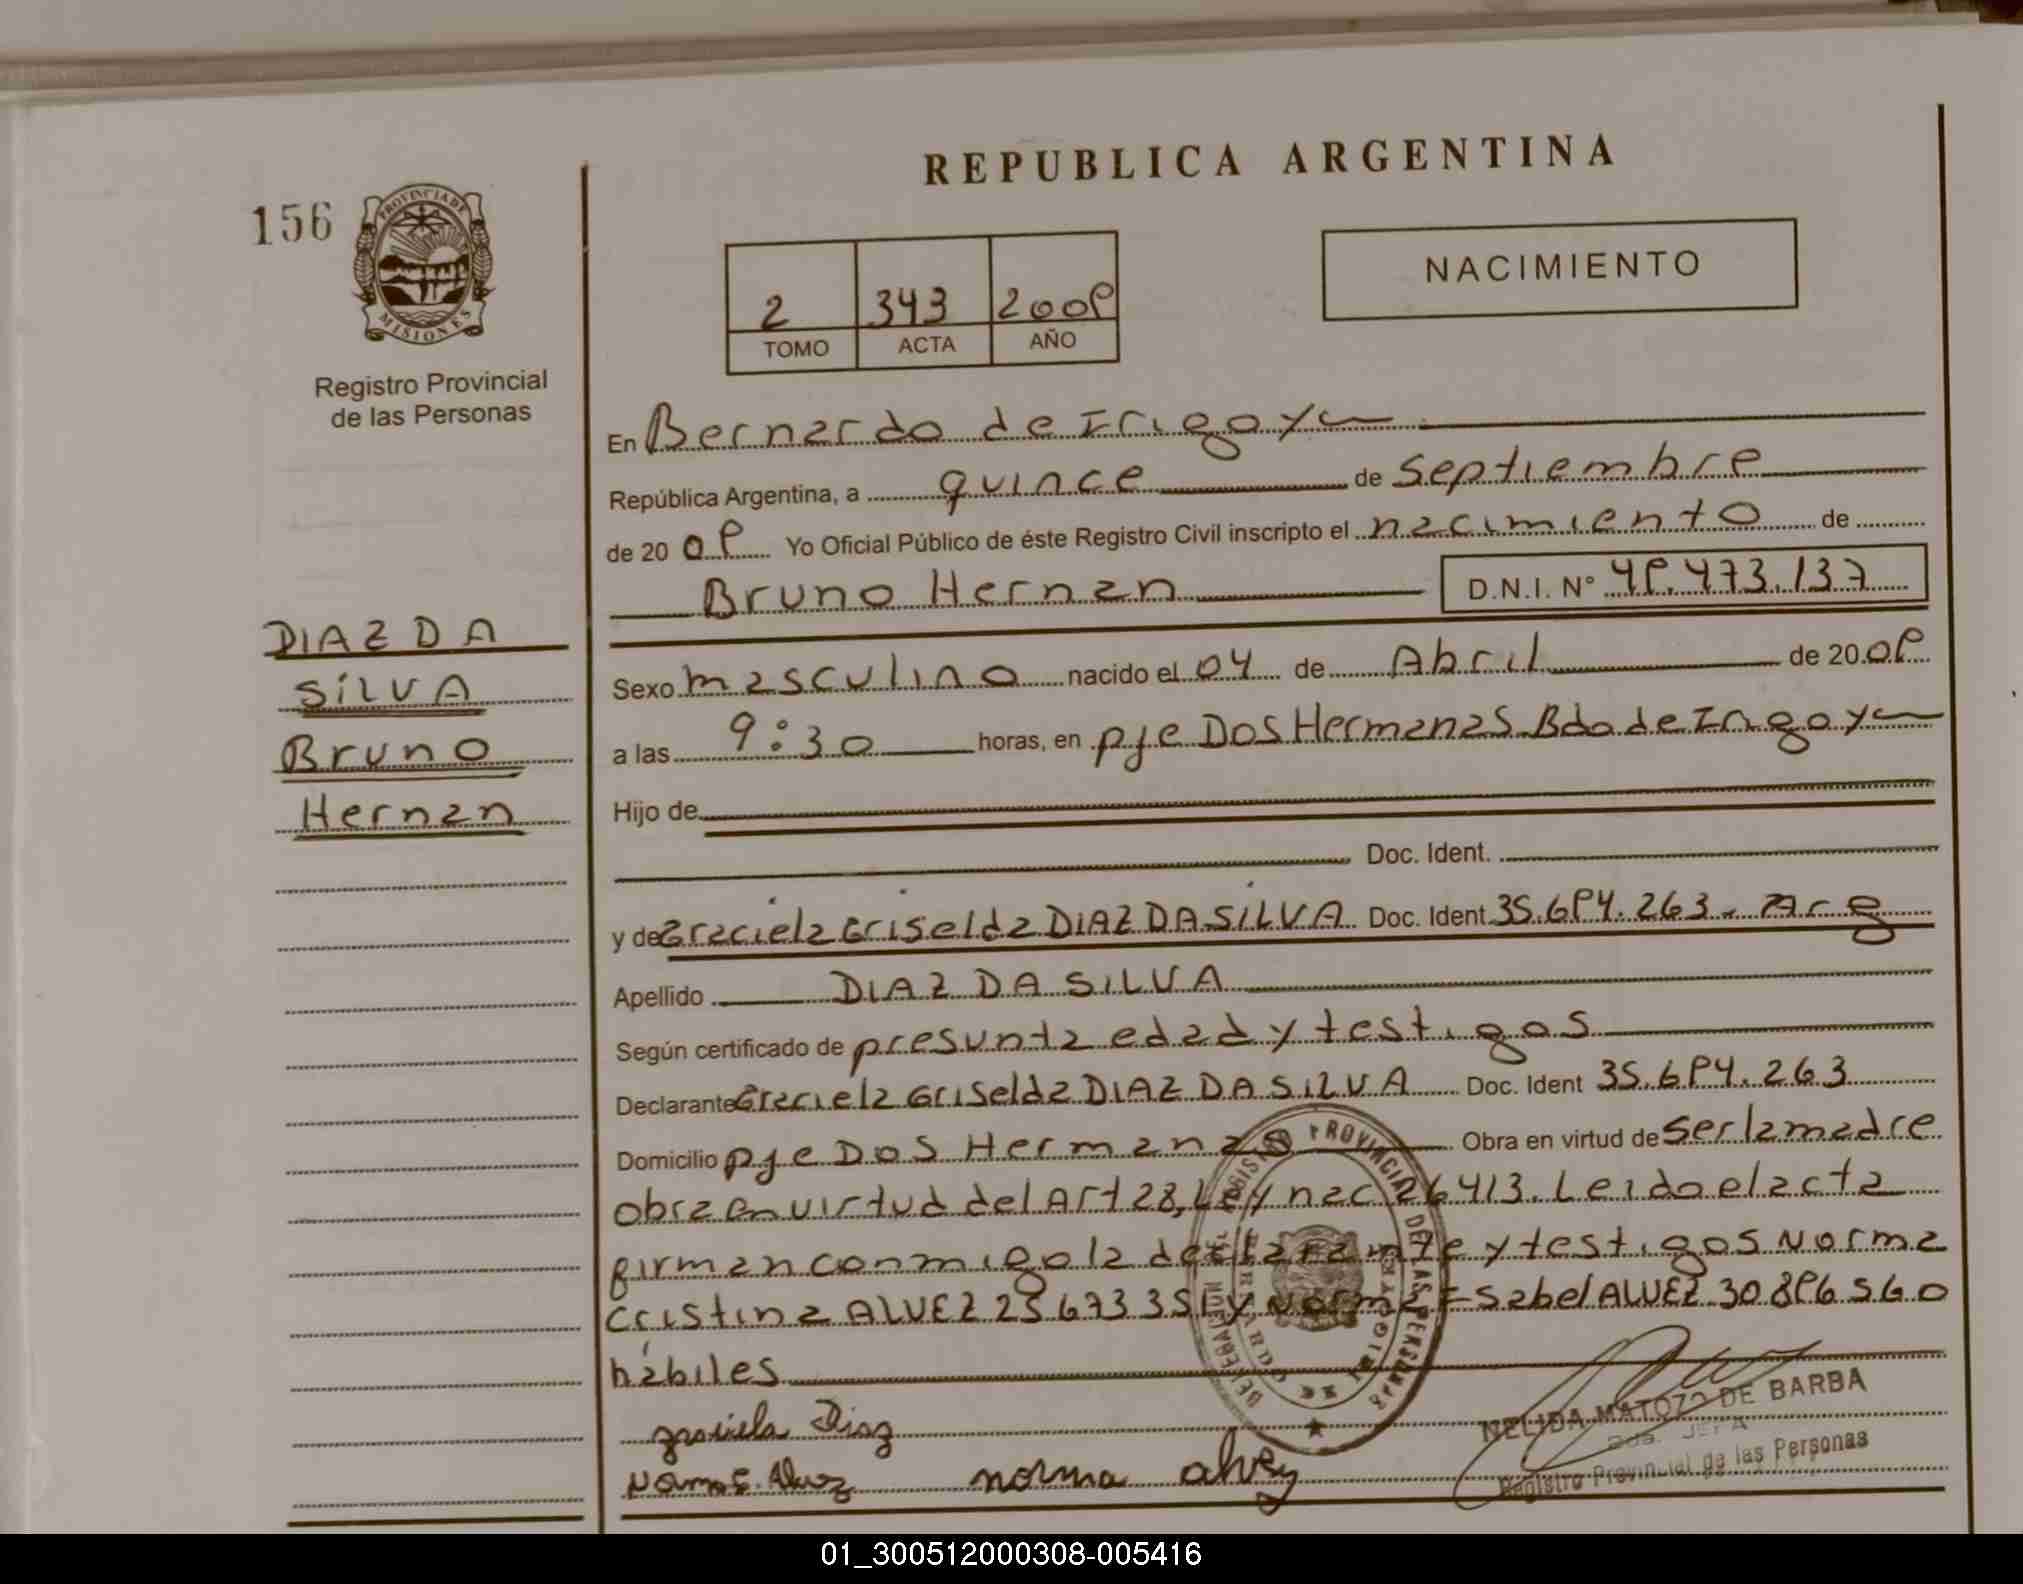 REPUBLICA ARGENTINA
156
PROVINCIA DE MISIONES
NACIMIENTO
2 343 2009
TOMO ACTA AÑO
Registro Provincial
de las Personas
En Bernardo de Irigoyen
República Argentina, a quince de Septiembre
de 20 09 Yo Oficial Público de éste Registro Civil inscripto el nacimiento de
Bruno Hernan D.N.I. N° 49.473.137
DIAZ DA
SILVA
Bruno
Hernan
Sexo masculino nacido el 04 de Abril de 20 09
a las 9:30 horas, en pje Dos Hermanas Bdo de Irigoyen
Hijo de
Doc. Ident.
y de Graciela Griselda DIAZ DA SILVA Doc. Ident 35.694.263. Arg
Apellido DIAZ DA SILVA
Según certificado de presunta edad y testigos
Declarante Graciela Griselda DIAZ DA SILVA Doc. Ident 35.694.263
Domicilio pje Dos Hermanas Obra en virtud de Ser la madre
Obra en virtud del Art 28, Ley nac 26413. Leido el acta
firman conmigo la declarante y testigos Norma
Cristina ALVEZ 25 673 351 y Norma Isabel ALVEZ 30 896 560
hábiles
REGISTRO PROVINCIAL DE LAS PERSONAS
graciela Diaz
Norma C. Alvez norma alvez
NELIDA MATOZO DE BARBA
2da. JEFA
Registro Provincial de las Personas
01_300512000308-005416